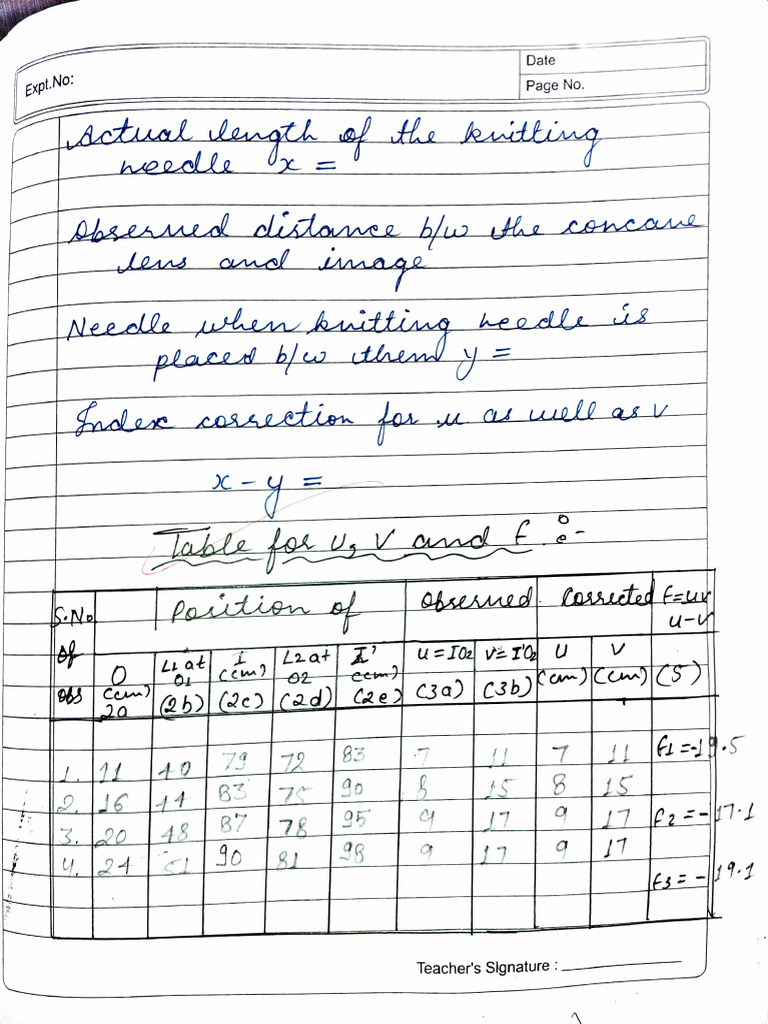 Expt.No:
Date
Page No.
Actual length of the knitting
needle x =
Observed distance b/w the concave
lens and image
Needle when knitting needle is
placed b/w them y =
Index correction for u as well as v
x - y =
Table for u, v and f. :-
S.No of obs | Position of | Observed | Corrected | f = uv / u-v
O (cm) 2a | L1 at O1 (2b) | I (cm) (2c) | L2 at O2 (2d) | I' (cm) (2e) | u = IO2 (3a) | v = I'O2 (3b) | u (cm) | v (cm) | (5)
1. 11 40 79 72 83 7 11 7 11 f1 = -19.5
2. 16 44 83 75 90 8 15 8 15
3. 20 48 87 78 95 9 17 9 17 f2 = -17.1
4. 24 51 90 81 98 9 17 9 17
f3 = -19.1
Teacher's Signature :